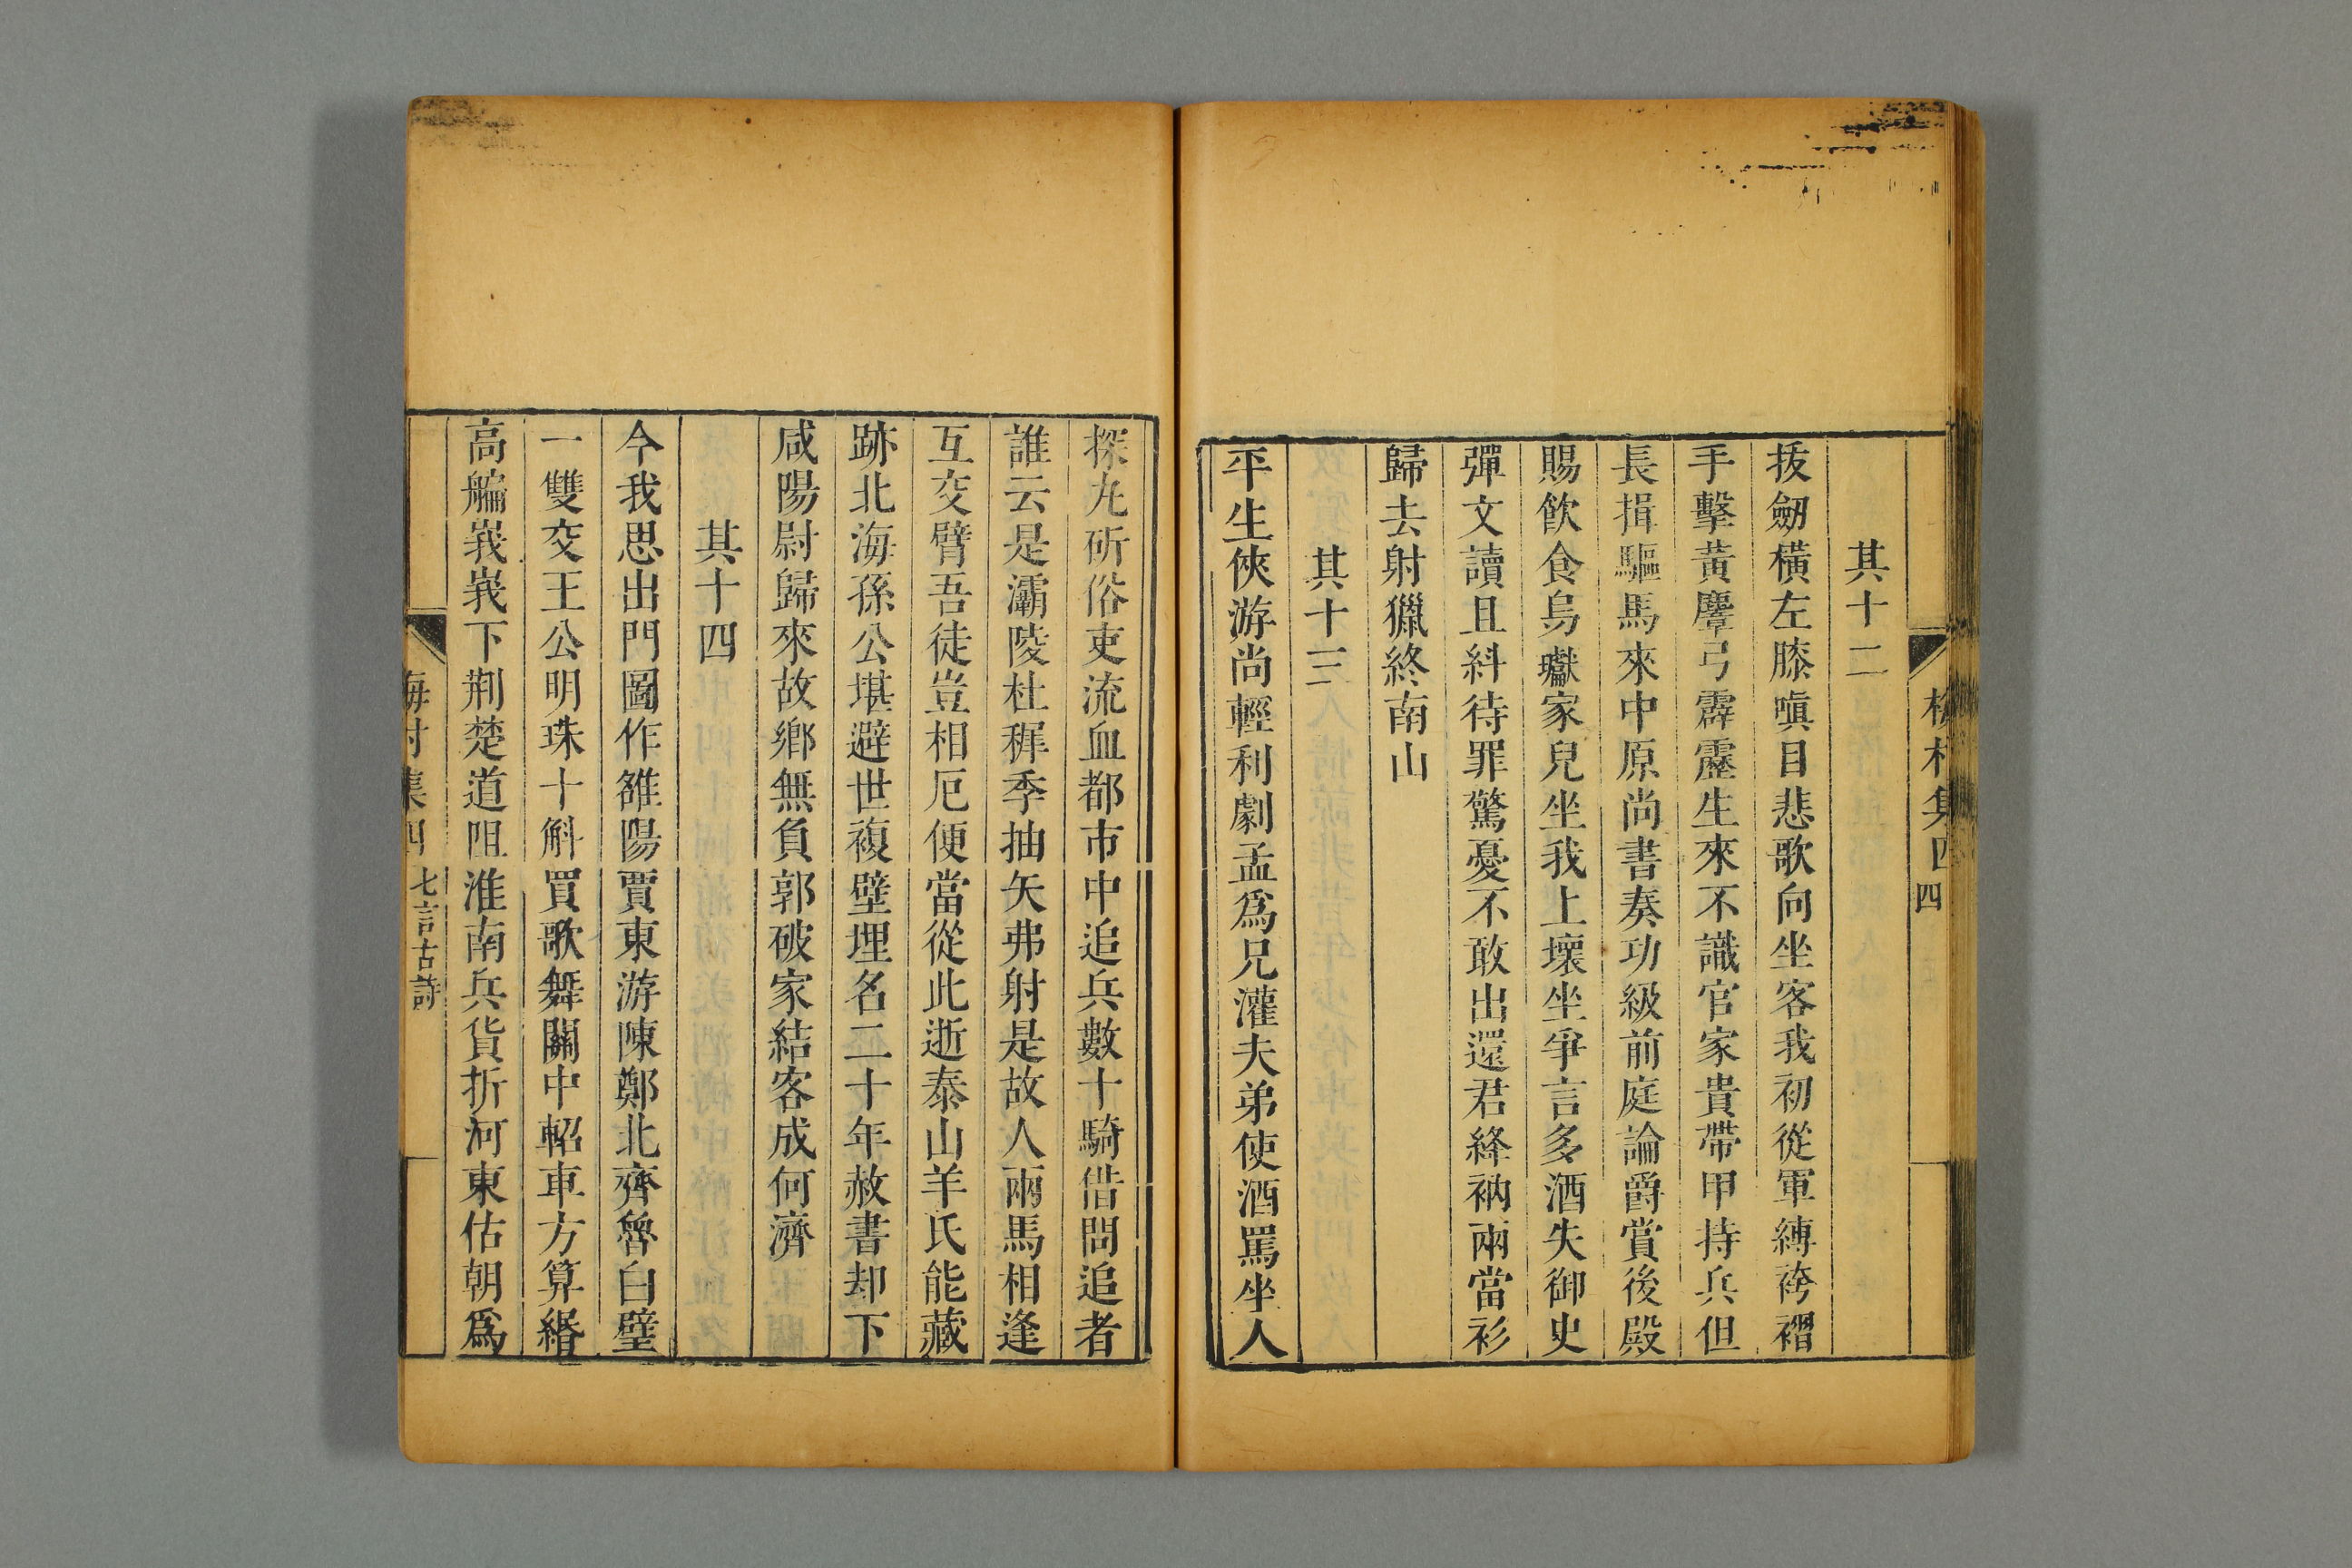 梅村集四
四
其十二
拔劒橫左膝嗔目悲歌向坐客我初從軍縛袴褶
手擊黃麞弓霹靂生來不識官家貴帶甲持兵但
長揖驅馬來中原尚書奏功級前庭論爵賞後殿
賜飲食烏巘家兒坐我上壞坐爭言多酒失御史
彈文讀且糾待罪驚憂不敢出還君絳衲兩當衫
歸去射獵終南山
其十三
平生俠游尚輕利劇孟爲兄灌夫弟使酒罵坐人
探丸斫俗吏流血都市中追兵數十騎借問追者
誰云是灞陵杜穉季抽矢弗射是故人兩馬相逢
互交臂吾徒豈相厄便當從此逝泰山羊氏能藏
跡北海孫公堪避世複壁埋名二十年赦書却下
咸陽尉歸來故鄉無負郭破家結客成何濟
其十四
今我思出門圖作雒陽賈東游陳鄭北齊魯白璧
一雙交王公明珠十斛買歌舞關中軺車方算緡
高艑峩峩下荆楚道阻淮南兵貨折河東估朝爲
梅村集四
七言古詩